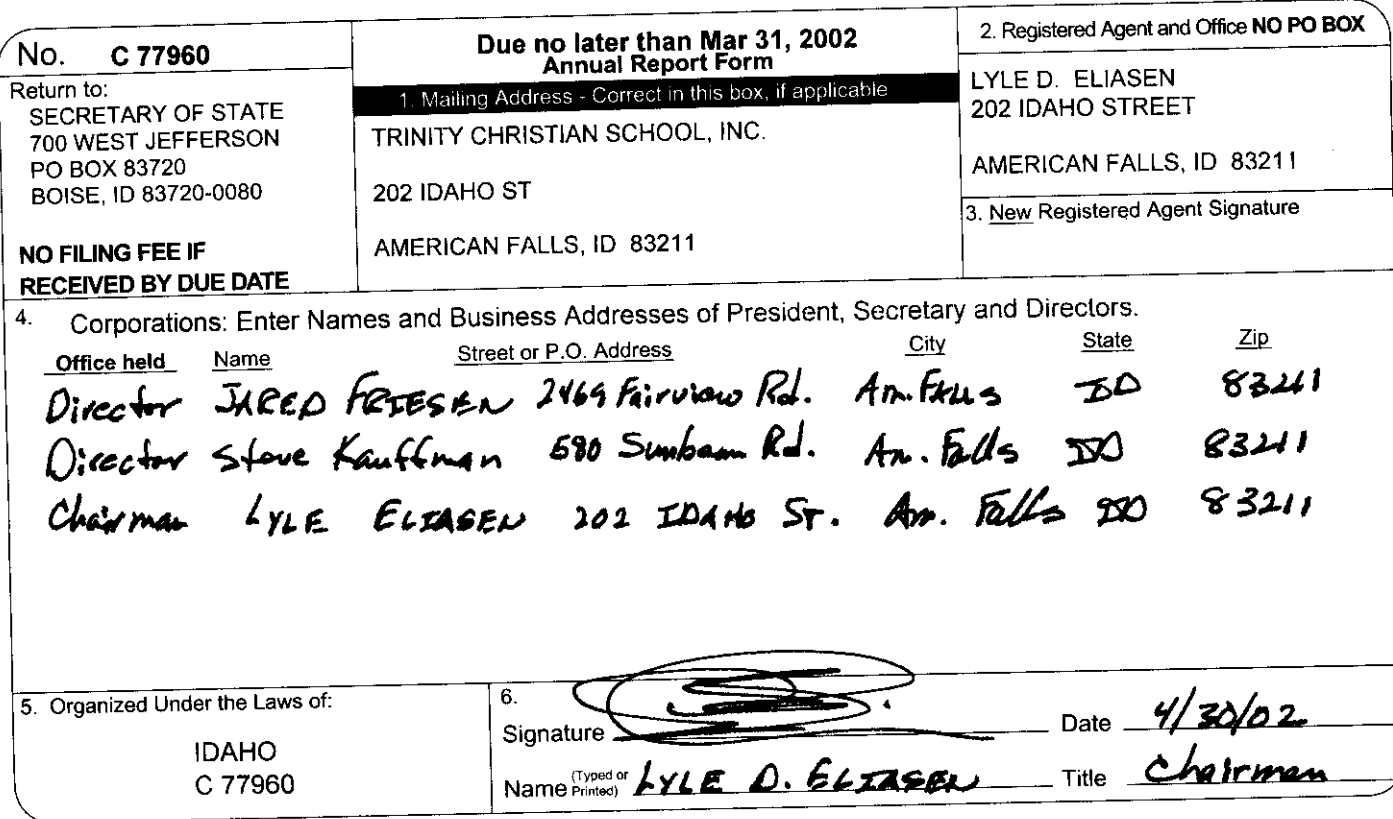 No. C 77960
Return to:
SECRETARY OF STATE
700 WEST JEFFERSON
PO BOX 83720
BOISE, ID 83720-0080
NO FILING FEE IF
RECEIVED BY DUE DATE
Due no later than Mar 31, 2002
Annual Report Form
1. Mailing Address - Correct in this box, if applicable
TRINITY CHRISTIAN SCHOOL, INC.
202 IDAHO ST
AMERICAN FALLS, ID 83211
2. Registered Agent and Office NO PO BOX
LYLE D. ELIASEN
202 IDAHO STREET
AMERICAN FALLS, ID 83211
3. New Registered Agent Signature
4. Corporations: Enter Names and Business Addresses of President, Secretary and Directors.
Office held Name Street or P.O. Address City State Zip
Director JARED FRIESEN 2469 Fairview Rd. Am. FALLS ID 83211
Director Steve Kauffman 580 Sunbeam Rd. Am. Falls ID 83211
Chairman LYLE ELIASEN 202 IDAHO ST. Am. Falls ID 83211
5. Organized Under the Laws of:
IDAHO
C 77960
6.
Signature Date 4/30/02
Name (Typed or Printed) LYLE D. ELIASEN Title Chairman